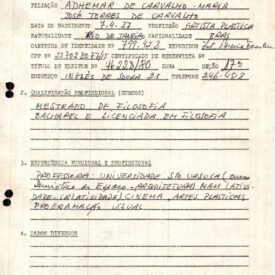 FILIAÇÃO ADHEMAR DE CARVALHO - MARIA
JOSÉ TORRES DE CARVALHO
DATA DO NASCIMENTO 7.9.37 PROFISSÃO ARTISTA PLASTICA
NATURALIDADE RIO DE JANEIRO NACIONALIDADE BRAS
CARTEIRA DE IDENTIDADE Nº 799.928 EXPEDIDOR
CPF Nº CERTIFICADO DE RESERVISTA
TÍTULO DE ELEITOR Nº ZONA SEÇÃO 17ª
ENDEREÇO INGLÊS DE SOUZA 25 TELEFONE 246-458
2. QUALIFICAÇÃO PROFISSIONAL (CURSOS)
MESTRADO DE FILOSOFIA
BACHAREL E LICENCIADA EM FILOSOFIA
3. EXPERIÊNCIA FUNCIONAL E PROFISSIONAL
PROFESSORA: UNIVERSIDADE STA URSULA (Curso
Semiótica do Espaço - ARQUITETURA) MAM (ATIVI-
DADE - CRIATIVIDADE) CINEMA, ARTES PLASTICAS
PROGRAMAÇÃO VISUAL
4. DADOS DIVERSOS